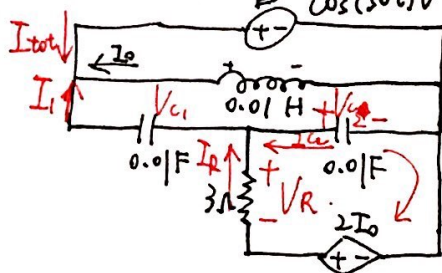 cos(50t)V
+ -
Itot
I0
+ -
I1
0.01 H
Vc1
+ Vc2 -
Ic2
0.01F
IR
0.01F
3Ω
+
- VR
2I0
+ -